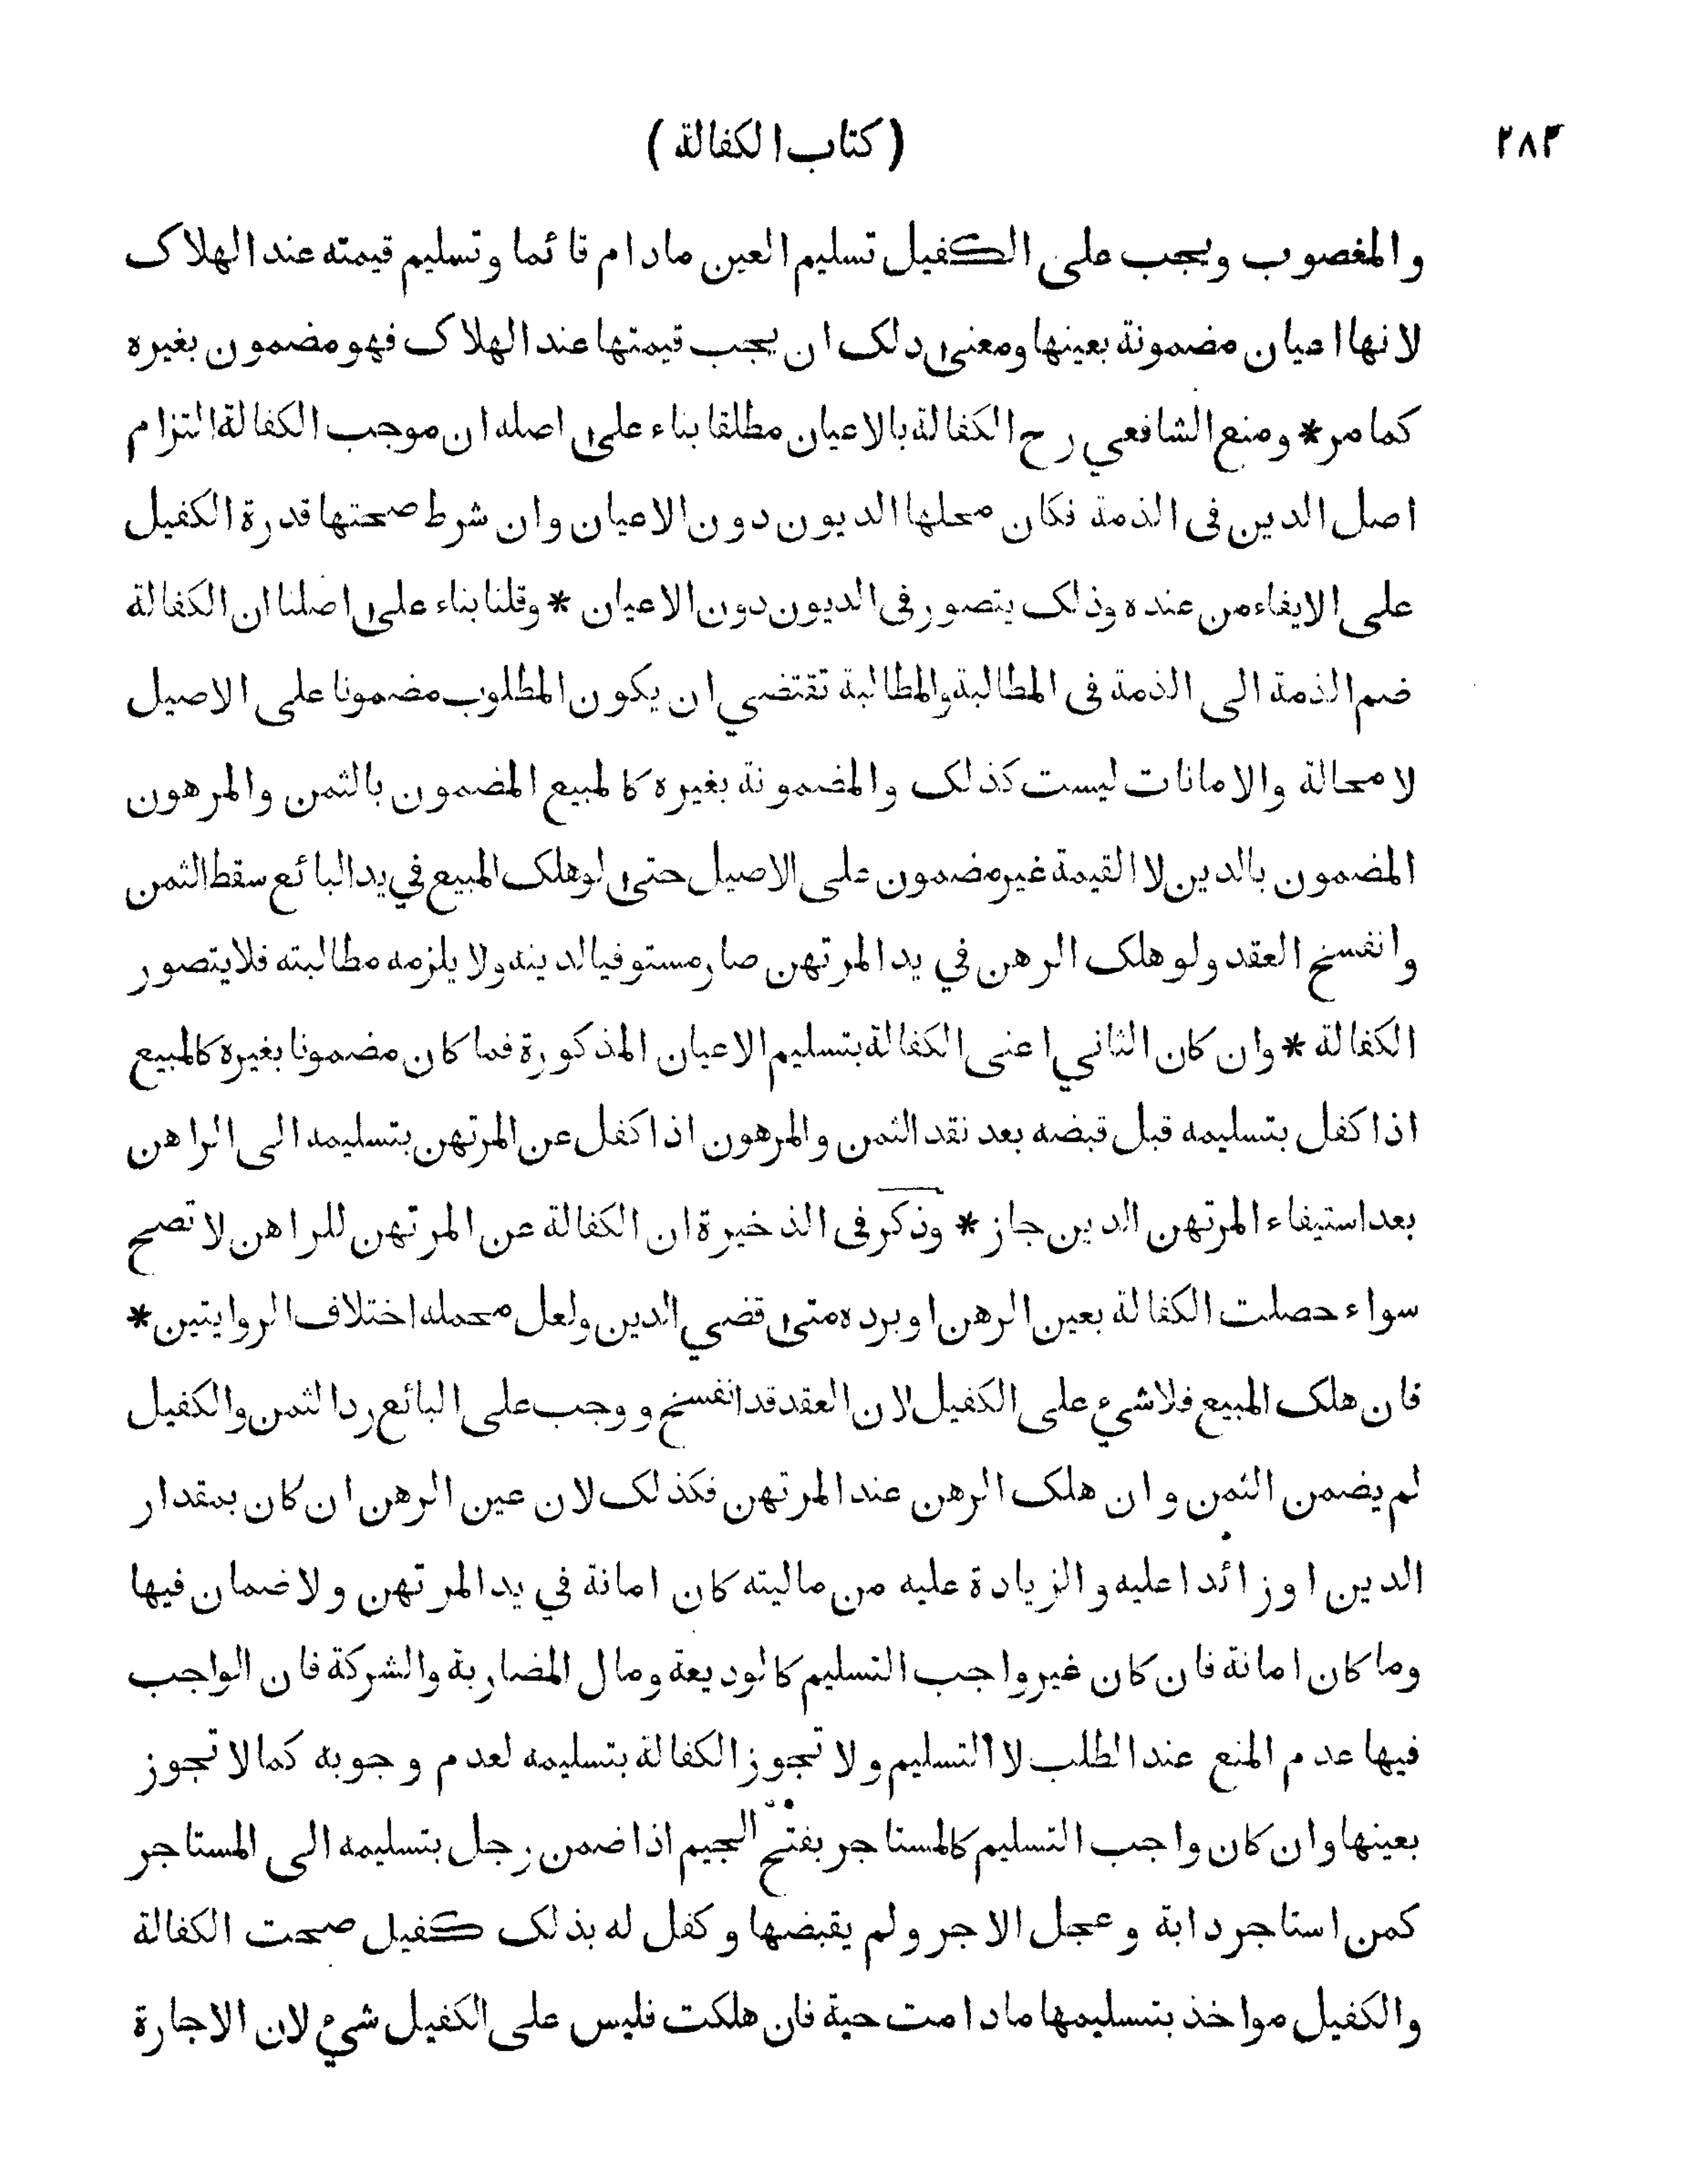 ٢٨٣ (كتاب الكفالة)
والمغصوب ويجب على الكفيل تسليم العين مادام قائما وتسليم قيمته عند الهلاك
لانها اعيان مضمونة بعينها ومعنى دلك ان يجب قيمتها عند الهلاك فهو مضمون بغيره
كمامر * ومنع الشافعي رح الكفالة بالاعيان مطلقا بناء على اصله ان موجب الكفالة التزام
اصل الدين فى الذمة فكان محلها الديون دون الاعيان وان شرط صحتها قدرة الكفيل
على الايفاء من عنده وذلك يتصور فى الديون دون الاعيان * وقلنا بناء على اصلنا ان الكفالة
ضم الذمة الى الذمة فى المطالبة والمطالبة تقتضي ان يكون المطلوب مضمونا على الاصيل
لا محالة والامانات ليست كذلك والمضمونة بغيره كالمبيع المضمون بالثمن والمرهون
المضمون بالدين لا القيمة غير مضمون على الاصيل حتى لو هلك المبيع في يد البائع سقط الثمن
وانفسخ العقد ولو هلك الرهن في يد المرتهن صار مستوفيا لدينه ولا يلزمه مطالبته فلا يتصور
الكفالة * وان كان الثاني اعنى الكفالة بتسليم الاعيان المذكورة فما كان مضمونا بغيره كالمبيع
اذا كفل بتسليمه قبل قبضه بعد نقد الثمن والمرهون اذا كفل عن المرتهن بتسليمه الى الراهن
بعد استيفاء المرتهن الدين جاز * وذكر فى الذخيرة ان الكفالة عن المرتهن للراهن لا تصح
سواء حصلت الكفالة بعين الرهن او برده متى قضي الدين ولعل محمله اختلاف الروايتين *
فان هلك المبيع فلا شيء على الكفيل لان العقد قد انفسخ ووجب على البائع رد الثمن والكفيل
لم يضمن الثمن وان هلك الرهن عند المرتهن فكذلك لان عين الرهن ان كان بمقدار
الدين او زائدا عليه والزيادة عليه من ماليته كان امانة في يد المرتهن ولا ضمان فيها
وما كان امانة فان كان غير واجب التسليم كالوديعة ومال المضاربة والشركة فان الواجب
فيها عدم المنع عند الطلب لا التسليم ولا تجوز الكفالة بتسليمه لعدم وجوبه كما لا تجوز
بعينها وان كان واجب التسليم كالمستاجر بفتح الجيم اذا ضمن رجل بتسليمه الى المستاجر
كمن استاجر دابة وعجل الاجر ولم يقبضها وكفل له بذلك كفيل صحت الكفالة
والكفيل مواخذ بتسليمها مادامت حية فان هلكت فليس على الكفيل شيء لان الاجارة